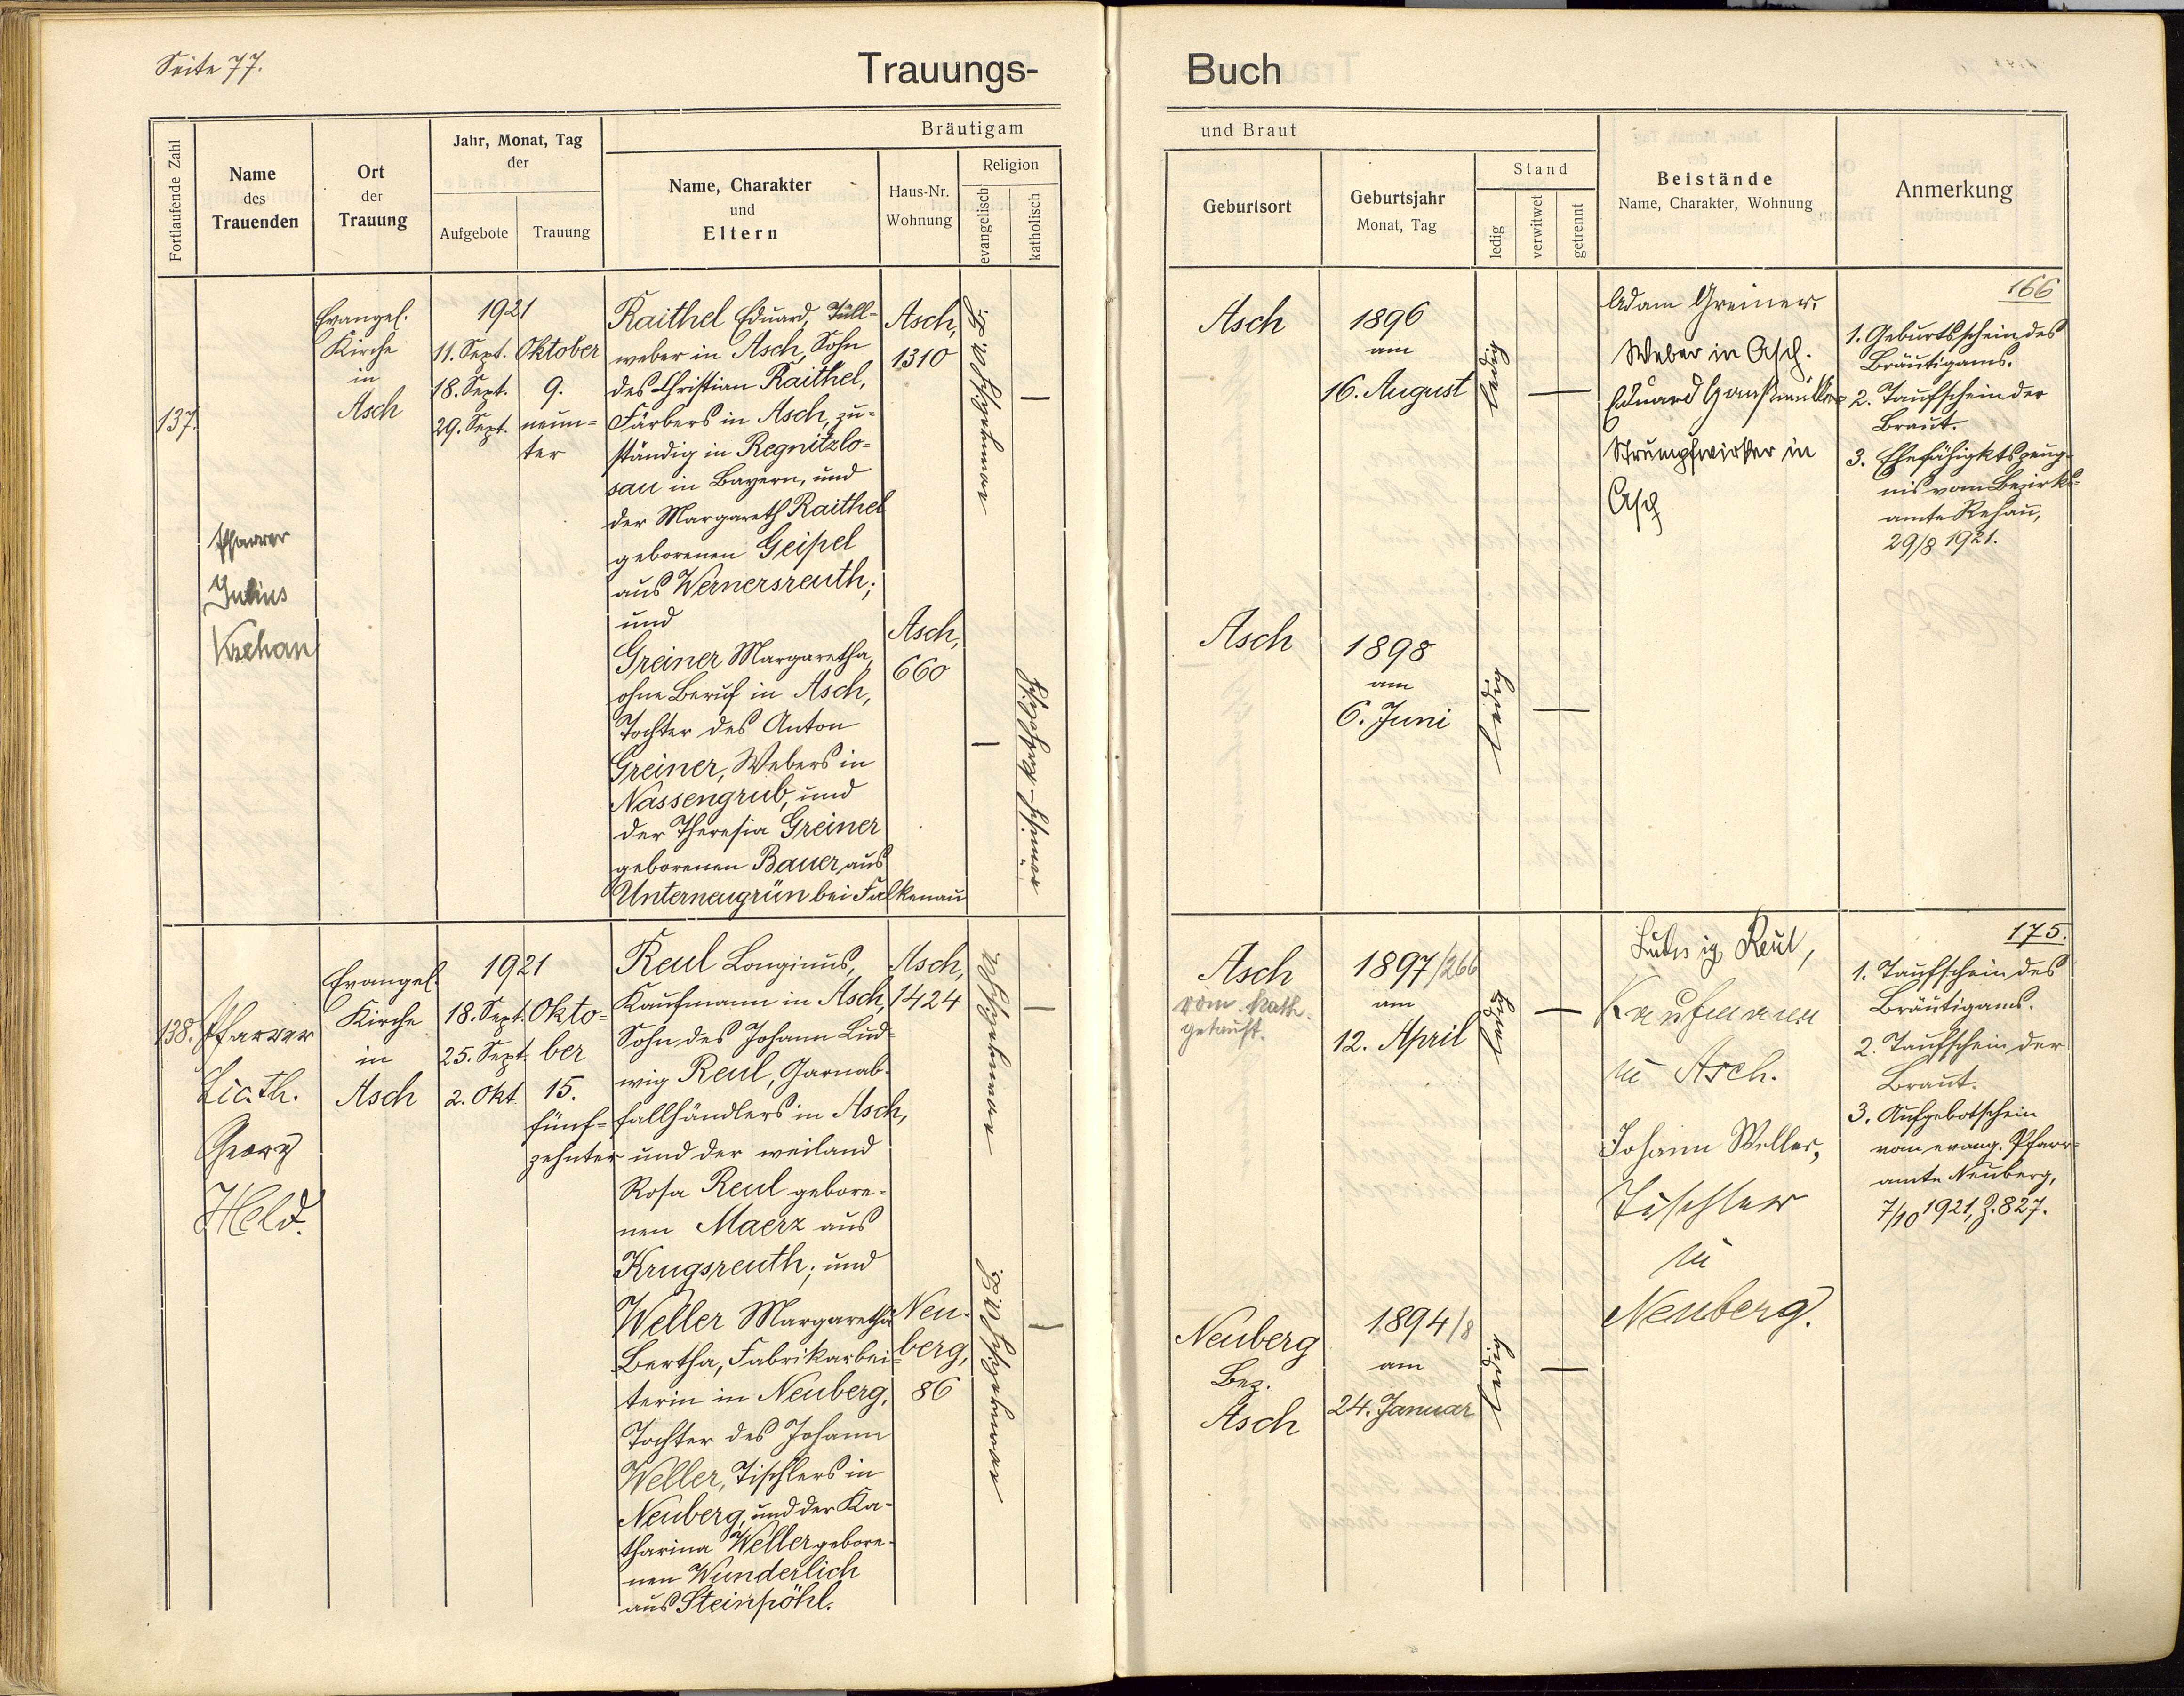 Seite 77.
Trauungs-
Buch
Fortlaufende Zahl
Name
des
Trauenden
Ort
der
Trauung
Jahr, Monat, Tag
der
Aufgebote
Trauung
Bräutigam
Name, Charakter
und
Eltern
Haus-Nr.
Wohnung
Religion
evangelisch
katholisch
und Braut
Geburtsort
Geburtsjahr
Monat, Tag
Stand
ledig
verwitwet
getrennt
Beistände
Name, Charakter, Wohnung
Anmerkung
137.
Pfarrer
Julius
Evangel.
Kirche
in
Asch
1921
11. Sept.
18. Sept.
29. Sept.
Oktober
9.
neun-
ter
Raithel Eduard, Tüll-
weber in Asch, Sohn
des Christian Raithel,
Färbers in Asch, zu-
ständig in Regnitzlo-
sau in Bayern, und
der Margareth Raithel
geborenen Geipel
aus Wernersreuth;
und
Greiner Margaretha,
ohne Beruf in Asch,
Tochter des Anton
Greiner, Webers in
Nassengrub, und
der Theresia Greiner
geborenen Bauer, aus
Unterneugrün bei Falkenau
Asch,
1310
Asch,
660
evangelisch
—
—
römisch-katholisch
Asch
1896
am
16. August
ledig
—
Asch
1898
am
6. Juni
ledig
—
Adam Greiner,
Weber in Asch.
Eduard
Strumpfwirker in
Asch
166
1. Geburtsschein des
Bräutigams.
2. Taufschein der
Braut.
3. Ehefähigktszeug-
nis vom Bezirks-
amte Rehau,
29/8 1921.
138.
Pfarrer
Lic. th.
Georg
Held.
Evangel.
Kirche
in
Asch
1921
18. Sept.
25. Sept.
2. Okt.
Okto-
ber
15.
fünf-
zehnter
Reul Longinus,
Kaufmann in Asch,
Sohn des Johann Lud-
wig Reul, Garnab-
fallhändlers in Asch,
und der weiland
Rosa Reul gebore-
nen Maerz aus
Krugsreuth; und
Weller Margaretha
Bertha, Fabrikarbei-
terin in Neuberg,
Tochter des Johann
Weller, Tischlers in
Neuberg, und der Ka-
tharina Weller gebore-
nen Wunderlich
aus Steinpöhl.
Asch,
1424
Neu-
berg,
86
evangelisch
—
evangelisch
—
Asch
röm. kath.
getauft.
1897/266
am
12. April
ledig
—
Neuberg
Bez.
Asch
1894/8
am
24. Januar
ledig
—
Ludwig Reul,
Kaufmann
in Asch.
Johann Weller,
Tischler
in
Neuberg.
175.
1. Taufschein des
Bräutigams.
2. Taufschein der
Braut.
3. Aufgebotschein
vom evang. Pfarr-
amte Neuberg,
7/10 1921, Z. 827.